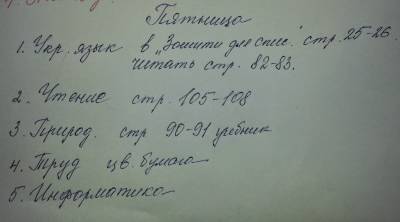 Пятница
1. Укр. язык в „Зошити для спис." стр. 25-26.
читать стр. 82-83.
2. Чтение стр. 105-108
3. Природ. стр 90-91 учебник
4. Труд цв. бумага
5. Информатика